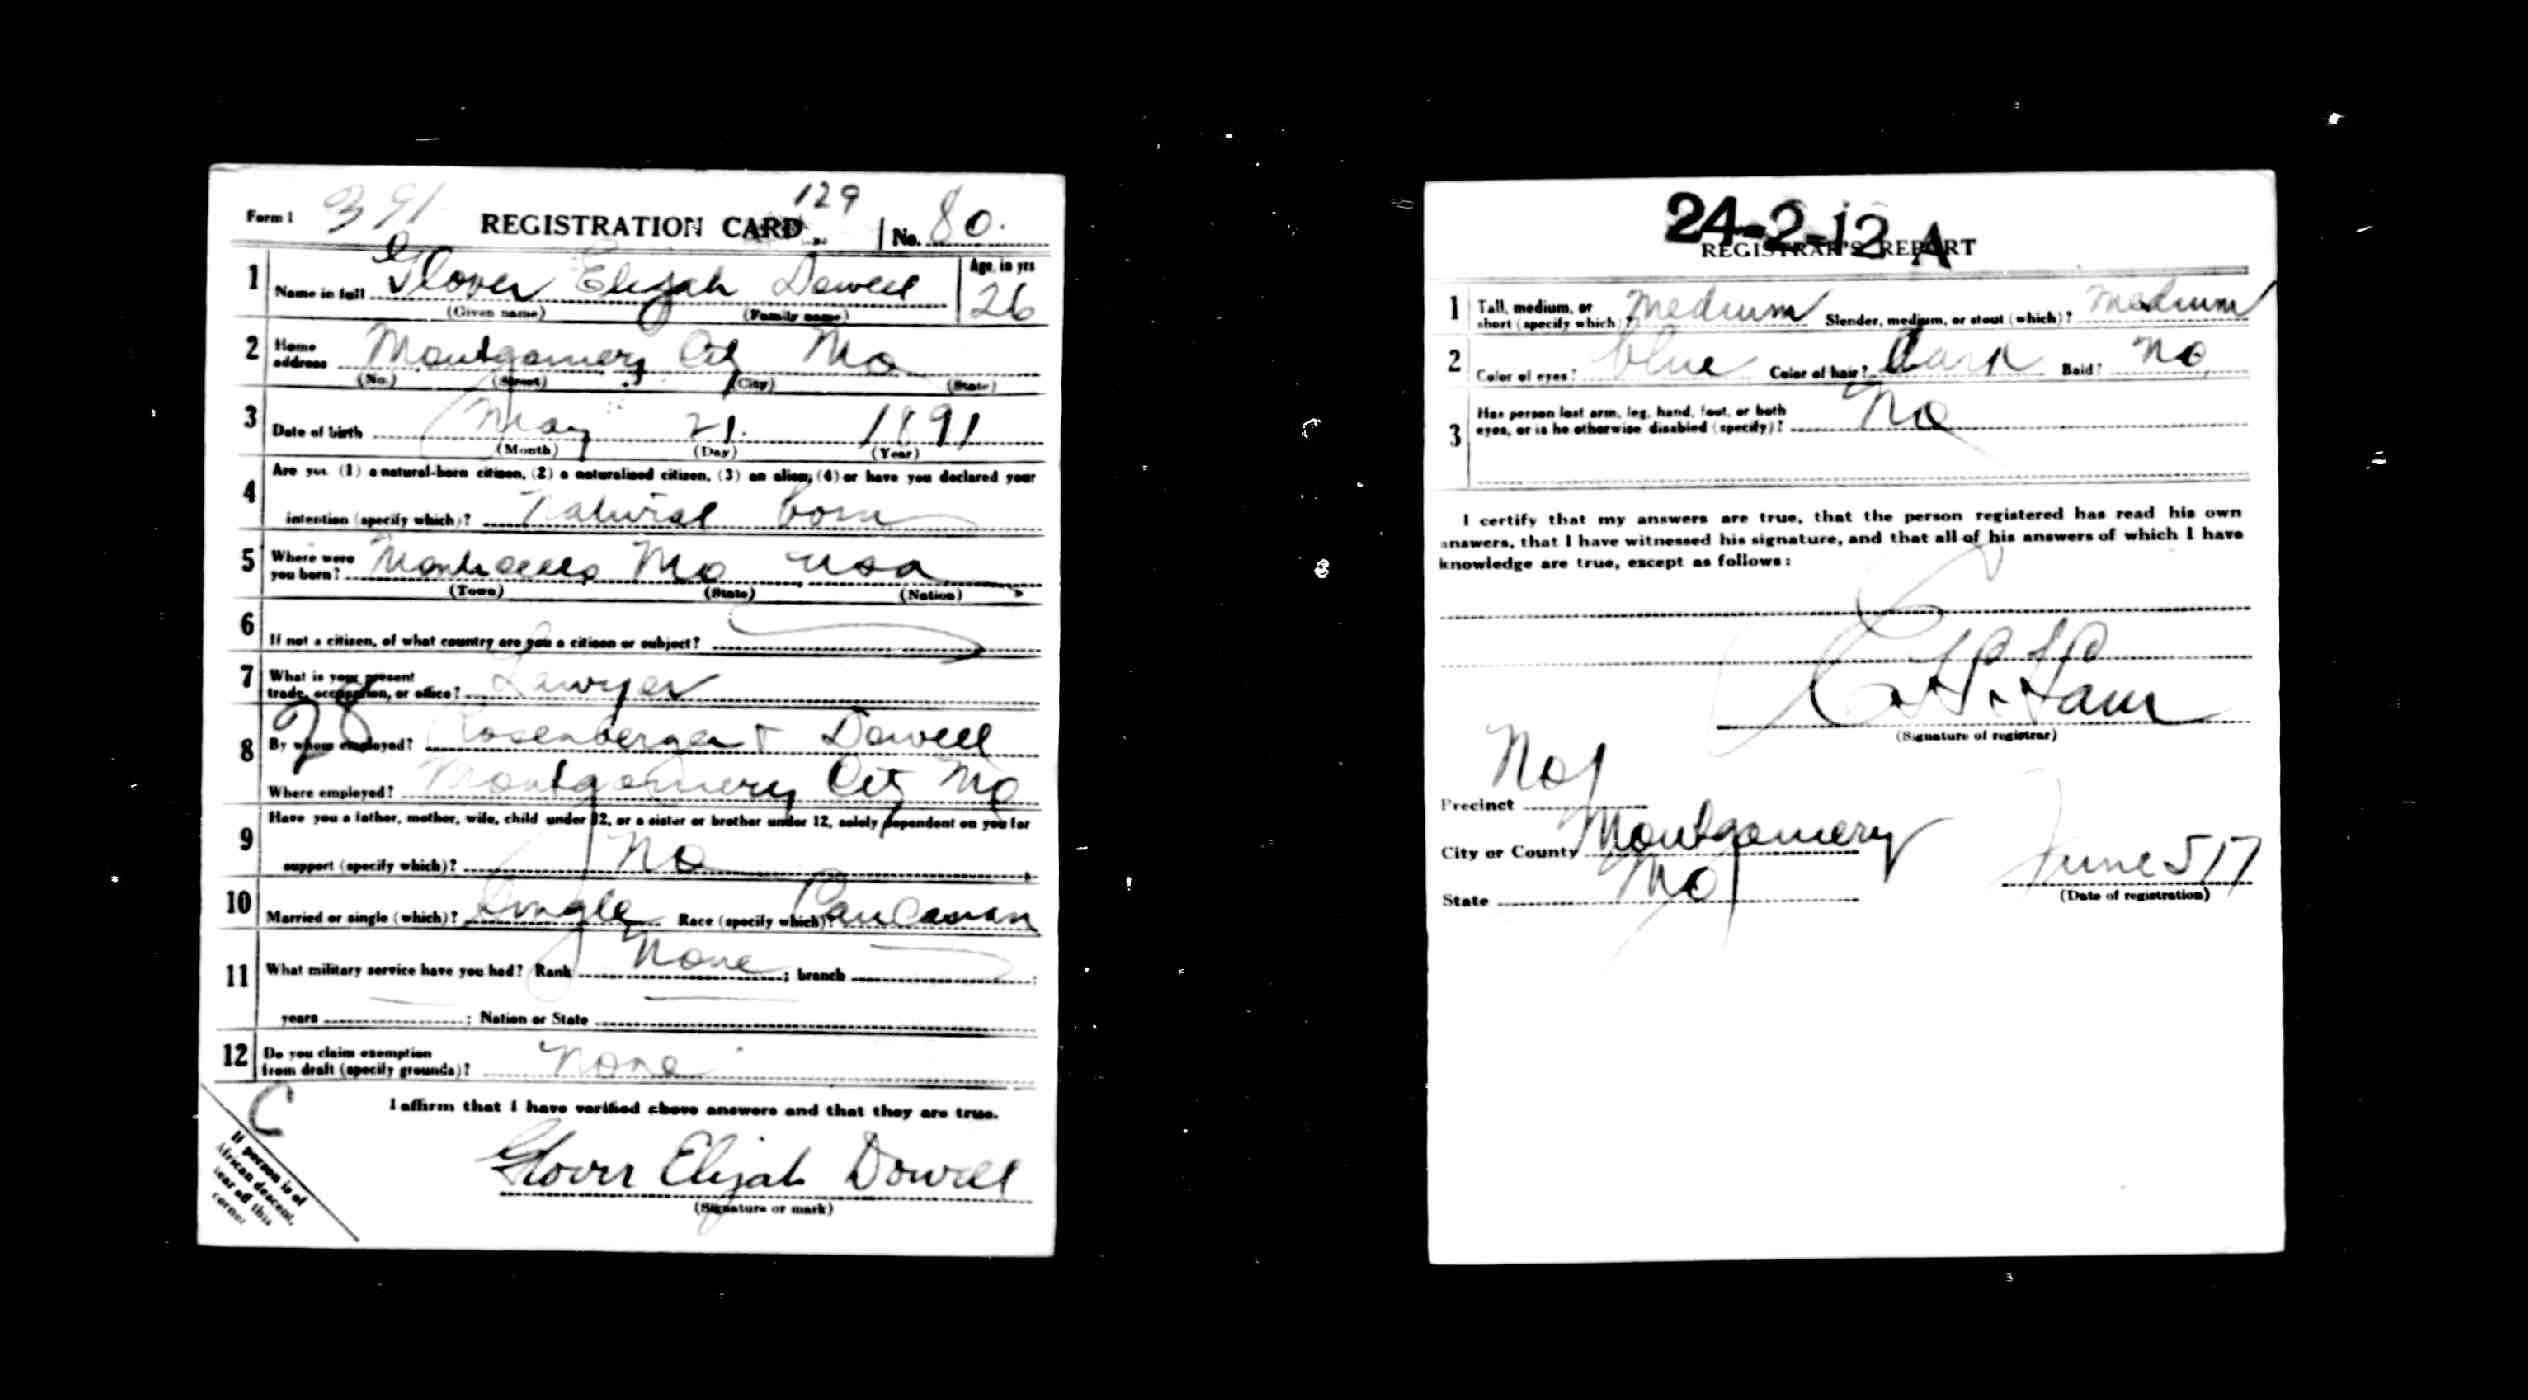 Form 1 391 REGISTRATION CARD 129 No. 80.
1 Name in full Glover Elijah Dowell Age, in yrs 26
(Given name) (Family name)
2 Home address Montgomery City Mo
(No.) (Street) (City) (State)
3 Date of birth May 21. 1891
(Month) (Day) (Year)
4 Are you (1) a natural-born citizen, (2) a naturalized citizen, (3) an alien, (4) or have you declared your
intention (specify which)? Natural born
5 Where were you born? Monticello Mo USA
(Town) (State) (Nation)
6 If not a citizen, of what country are you a citizen or subject?
7 What is your present trade, occupation, or office? Lawyer
28
8 By whom employed? Rosenberger & Dowell
Where employed? Montgomery City Mo
9 Have you a father, mother, wife, child under 12, or a sister or brother under 12, solely dependent on you for
support (specify which)? No
10 Married or single (which)? Single Race (specify which)? Caucasian
11 What military service have you had? Rank None ; branch ;
years ; Nation or State
12 Do you claim exemption from draft (specify grounds)? None
C
I affirm that I have verified above answers and that they are true.
Glover Elijah Dowell
(Signature or mark)
If person is of
African descent,
tear off this
corner
24-2-12 A
REGISTRAR'S REPORT
1 Tall, medium, or short (specify which)? Medium Slender, medium, or stout (which)? Medium
2 Color of eyes? blue Color of hair? Dark Bald? No
3 Has person lost arm, leg, hand, foot, or both
eyes, or is he otherwise disabled (specify)? No
I certify that my answers are true, that the person registered has read his own
answers, that I have witnessed his signature, and that all of his answers of which I have
knowledge are true, except as follows:
(Signature of registrar)
Precinct No 1
City or County Montgomery
State Mo
June 5 17
(Date of registration)